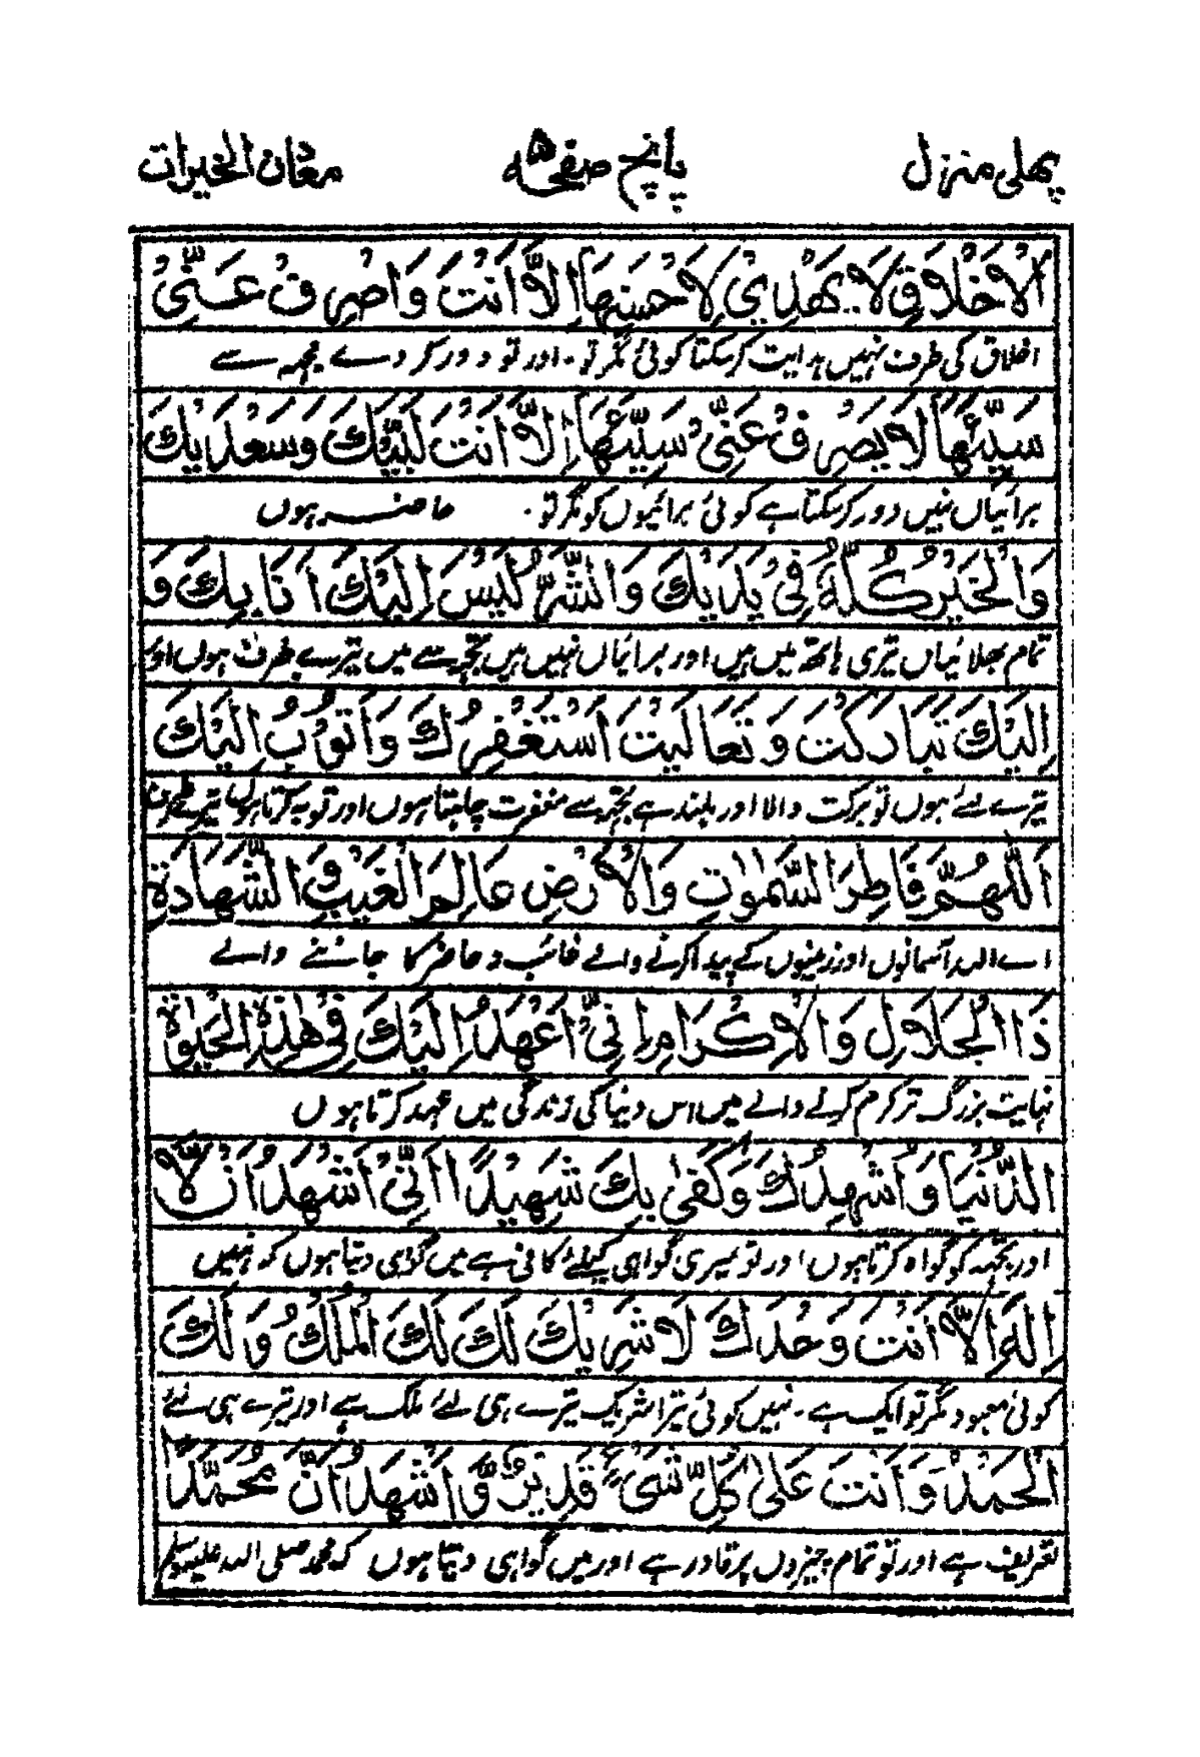 پھلی منزل پانچ صفحہ ۵ مغان الخیرات
الْاَخْلَاقِ لَا یَهْدِیْ لِاَحْسَنِهَا اِلَّا اَنْتَ وَاصْرِفْ عَنِّیْ
اخلاق کی طرف نہیں ہدایت کرسکتا کوئی مگر تو ۔ اور تو دور کر دے مجھہ سے
سَیِّئَهَا لَا یَصْرِفُ عَنِّیْ سَیِّئَهَا اِلَّا اَنْتَ لَبَّیْكَ وَسَعْدَیْكَ
برائیاں نہیں دور کرسکتا ہے کوئی برائیوں کو مگر تو ۔ حاضر ہوں
وَالْخَیْرُ كُلُّهٗ فِیْ یَدَیْكَ وَالشَّرُّ لَیْسَ اِلَیْكَ اَنَا بِكَ وَ
تمام بھلائیاں تیری ہاتھ میں ہیں اور برائیاں نہیں ہیں تجھہ سے میں تیرے طرف ہوں اور
اِلَیْكَ تَبَارَكْتَ وَتَعَالَیْتَ اَسْتَغْفِرُكَ وَاَتُوْبُ اِلَیْكَ
تیرے لئے ہوں تو برکت والا اور بلند ہے تجھہ سے مغفرت چاہتا ہوں اور توبہ کرتا ہوں تیرے طرف
اَللّٰهُمَّ فَاطِرَ السَّمٰوٰتِ وَالْاَرْضِ عَالِمَ الْغَیْبِ وَالشَّهَادَةِ
اے اللہ آسمانوں اور زمینوں کے پیدا کرنے والے غائب و حاضر کا جاننے والے
ذَا الْجَلَالِ وَالْاِكْرَامِ اِنِّیْ اَعْهَدُ اِلَیْكَ فِیْ هٰذِهِ الْحَیٰوةِ
نہایت بزرگ تر کرم کرنے والے میں اس دنیا کی زندگی میں عہد کرتا ہوں
الدُّنْیَا وَاُشْهِدُكَ وَكَفٰی بِكَ شَهِیْدًا اَنِّیْ اَشْهَدُ اَنْ لَّا
اور تجھہ کو گواہ کرتا ہوں اور تو میری گواہی کیلئے کافی ہے میں گواہی دیتا ہوں کہ نہیں
اِلٰهَ اِلَّا اَنْتَ وَحْدَكَ لَا شَرِیْكَ لَكَ لَكَ الْمُلْكُ وَلَكَ
کوئی معبود مگر تو ایک ہے ۔ نہیں کوئی تیرا شریک تیرے ہی لئے ملک ہے اور تیرے ہی لئے
الْحَمْدُ وَاَنْتَ عَلٰی كُلِّ شَیْءٍ قَدِیْرٌ وَّاَشْهَدُ اَنَّ مُحَمَّدًا
تعریف ہے اور تو تمام چیزوں پر قادر ہے اور میں گواہی دیتا ہوں کہ محمد صلی اللہ علیہ وسلم